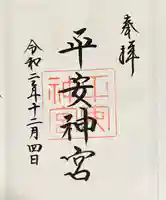 奉拝
平安神宮
令和二年十二月四日